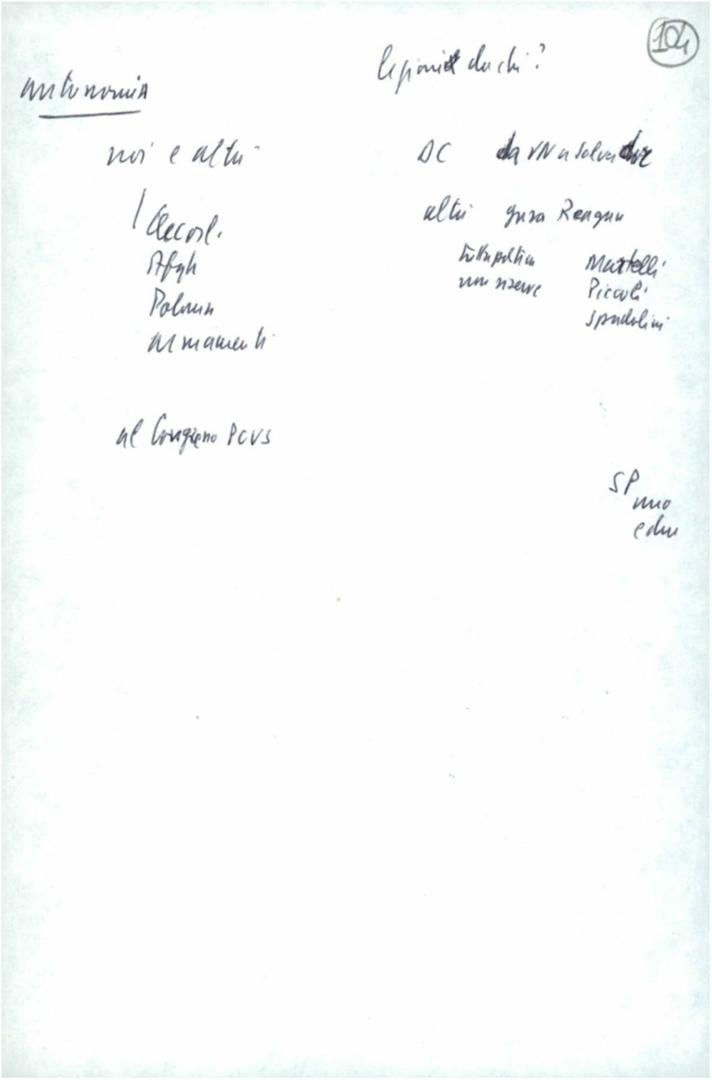 104
lezioni da chi?
autonomia
noi e altri
DC da VN a Salvador
altri Reagan
Cecosl.
Afgh
Polonia
armamenti
tutta politica
non riserve
Martelli
Piccoli
Spadolini
al Congresso PCUS
SP